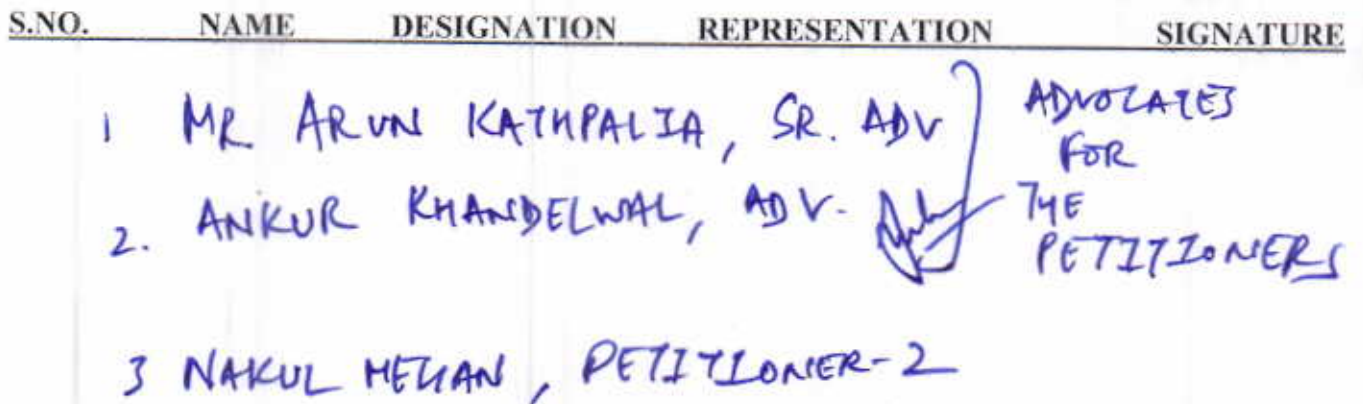 S.NO. NAME DESIGNATION REPRESENTATION SIGNATURE
1 MR ARUN KATHPALIA, SR. ADV
2. ANKUR KHANDELWAL, ADV.
ADVOCATES
FOR
THE
PETITIONERS
3 NAKUL MEHAN, PETITIONER-2